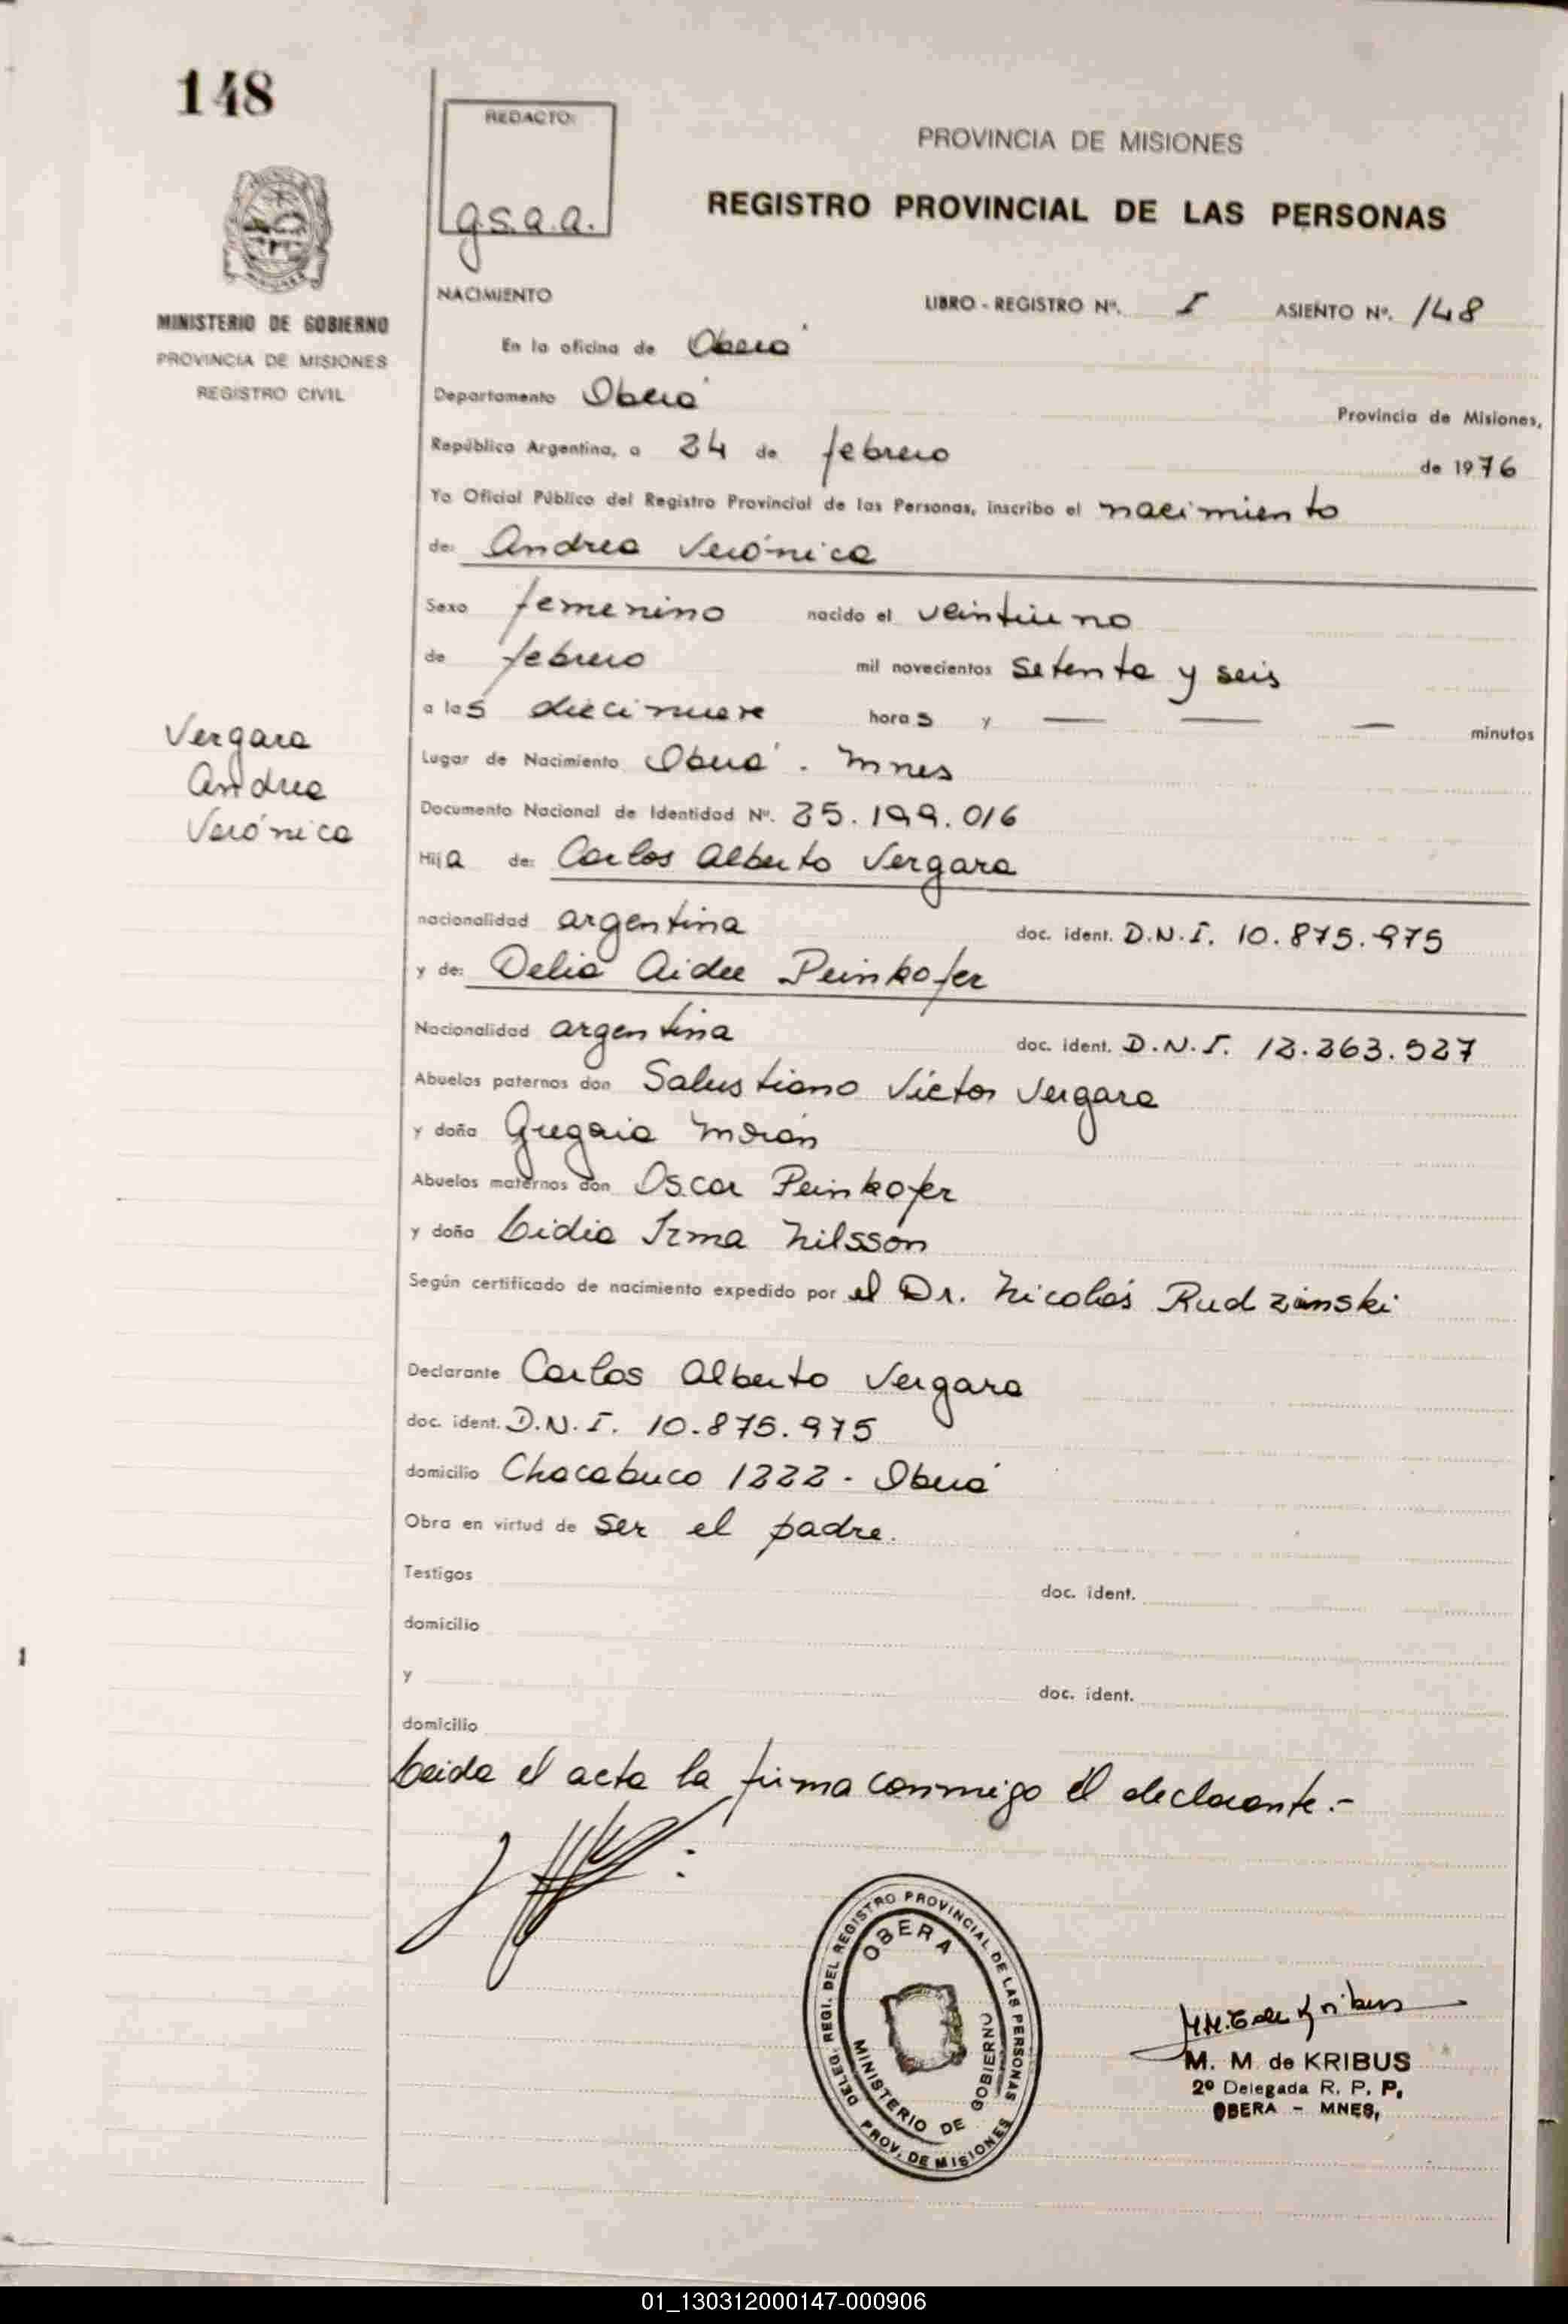 148
REDACTO:
g.s.a.a.
PROVINCIA DE MISIONES
REGISTRO PROVINCIAL DE LAS PERSONAS
MINISTERIO DE GOBIERNO
PROVINCIA DE MISIONES
REGISTRO CIVIL
NACIMIENTO LIBRO - REGISTRO Nº. I ASIENTO Nº. 148
En la oficina de Oberá
Departamento Oberá Provincia de Misiones,
República Argentina, a 24 de febrero de 1976
Yo Oficial Público del Registro Provincial de las Personas, inscribo el nacimiento
de: Andrea Verónica
Sexo femenino nacido el veintiuno
de febrero mil novecientos setenta y seis
a las diecinueve horas y — — — minutos
Vergara
Andrea
Verónica
Lugar de Nacimiento Oberá. Mnes
Documento Nacional de Identidad Nº. 25.199.016
Hija de: Carlos Alberto Vergara
nacionalidad argentina doc. ident. D.N.I. 10.875.975
y de: Delia Aidee Peinkofer
Nacionalidad argentina doc. ident. D.N.I. 12.263.527
Abuelos paternos don Salustiano Víctor Vergara
y doña Gregoria Morán
Abuelos maternos don Oscar Peinkofer
y doña Lidia Irma Nilsson
Según certificado de nacimiento expedido por el Dr. Nicolás Rudzinski
Declarante Carlos Alberto Vergara
doc. ident. D.N.I. 10.875.975
domicilio Chacabuco 1222 - Oberá
Obra en virtud de ser el padre.
Testigos doc. ident.
domicilio
y doc. ident.
domicilio
Leida el acta la firma conmigo el declarante.-
DELEG. REGI. DEL REGISTRO PROVINCIAL DE LAS PERSONAS
OBERA
MINISTERIO DE GOBIERNO
PROV. DE MISIONES
M. M. de KRIBUS
2º Delegada R. P. P.
OBERA - MNES,
01_130312000147-000906